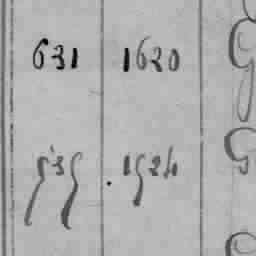 631 1620
535 1524